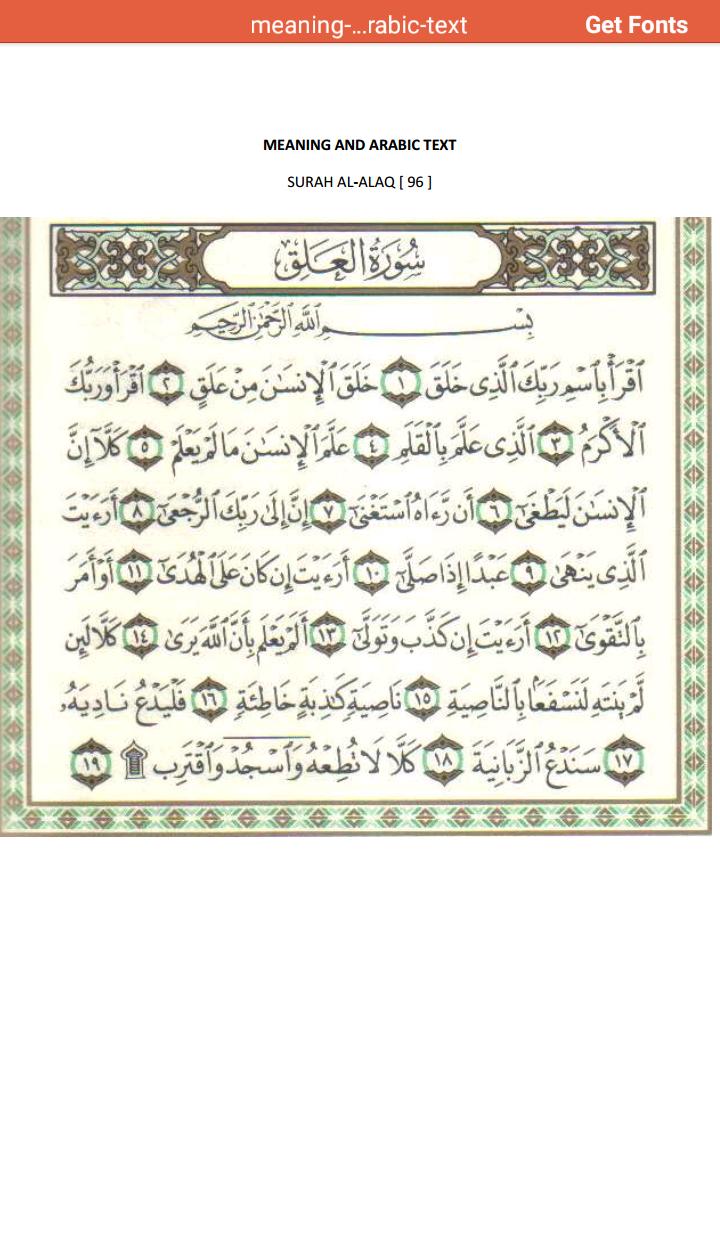 meaning-...rabic-text
Get Fonts
MEANING AND ARABIC TEXT
SURAH AL-ALAQ [ 96 ]
سُورَةُ العَلَق
بِسْمِ اللَّهِ الرَّحْمَٰنِ الرَّحِيمِ
ٱقْرَأْ بِٱسْمِ رَبِّكَ ٱلَّذِى خَلَقَ ١ خَلَقَ ٱلْإِنسَٰنَ مِنْ عَلَقٍ ٢ ٱقْرَأْ وَرَبُّكَ
ٱلْأَكْرَمُ ٣ ٱلَّذِى عَلَّمَ بِٱلْقَلَمِ ٤ عَلَّمَ ٱلْإِنسَٰنَ مَا لَمْ يَعْلَمْ ٥ كَلَّآ إِنَّ
ٱلْإِنسَٰنَ لَيَطْغَىٰٓ ٦ أَن رَّءَاهُ ٱسْتَغْنَىٰٓ ٧ إِنَّ إِلَىٰ رَبِّكَ ٱلرُّجْعَىٰٓ ٨ أَرَءَيْتَ
ٱلَّذِى يَنْهَىٰ ٩ عَبْدًا إِذَا صَلَّىٰٓ ١٠ أَرَءَيْتَ إِن كَانَ عَلَى ٱلْهُدَىٰٓ ١١ أَوْ أَمَرَ
بِٱلتَّقْوَىٰٓ ١٢ أَرَءَيْتَ إِن كَذَّبَ وَتَوَلَّىٰٓ ١٣ أَلَمْ يَعْلَم بِأَنَّ ٱللَّهَ يَرَىٰ ١٤ كَلَّا لَئِن
لَّمْ يَنتَهِ لَنَسْفَعًۢا بِٱلنَّاصِيَةِ ١٥ نَاصِيَةٍ كَٰذِبَةٍ خَاطِئَةٍ ١٦ فَلْيَدْعُ نَادِيَهُۥ
١٧ سَنَدْعُ ٱلزَّبَانِيَةَ ١٨ كَلَّا لَا تُطِعْهُ وَٱسْجُدْ وَٱقْتَرِب ۩ ١٩